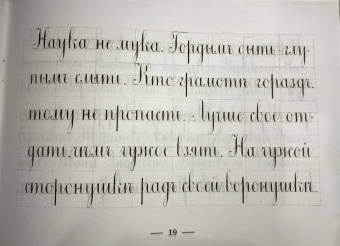 Наука не мука. Гордымъ быть-глу-
пымъ слыть. Кто грамотѣ гораздъ,
тому не пропасть. Лучше свое от-
дать, чѣмъ чужое взять. На чужой
сторонушкѣ радъ своей воронушкѣ.
— 19 —